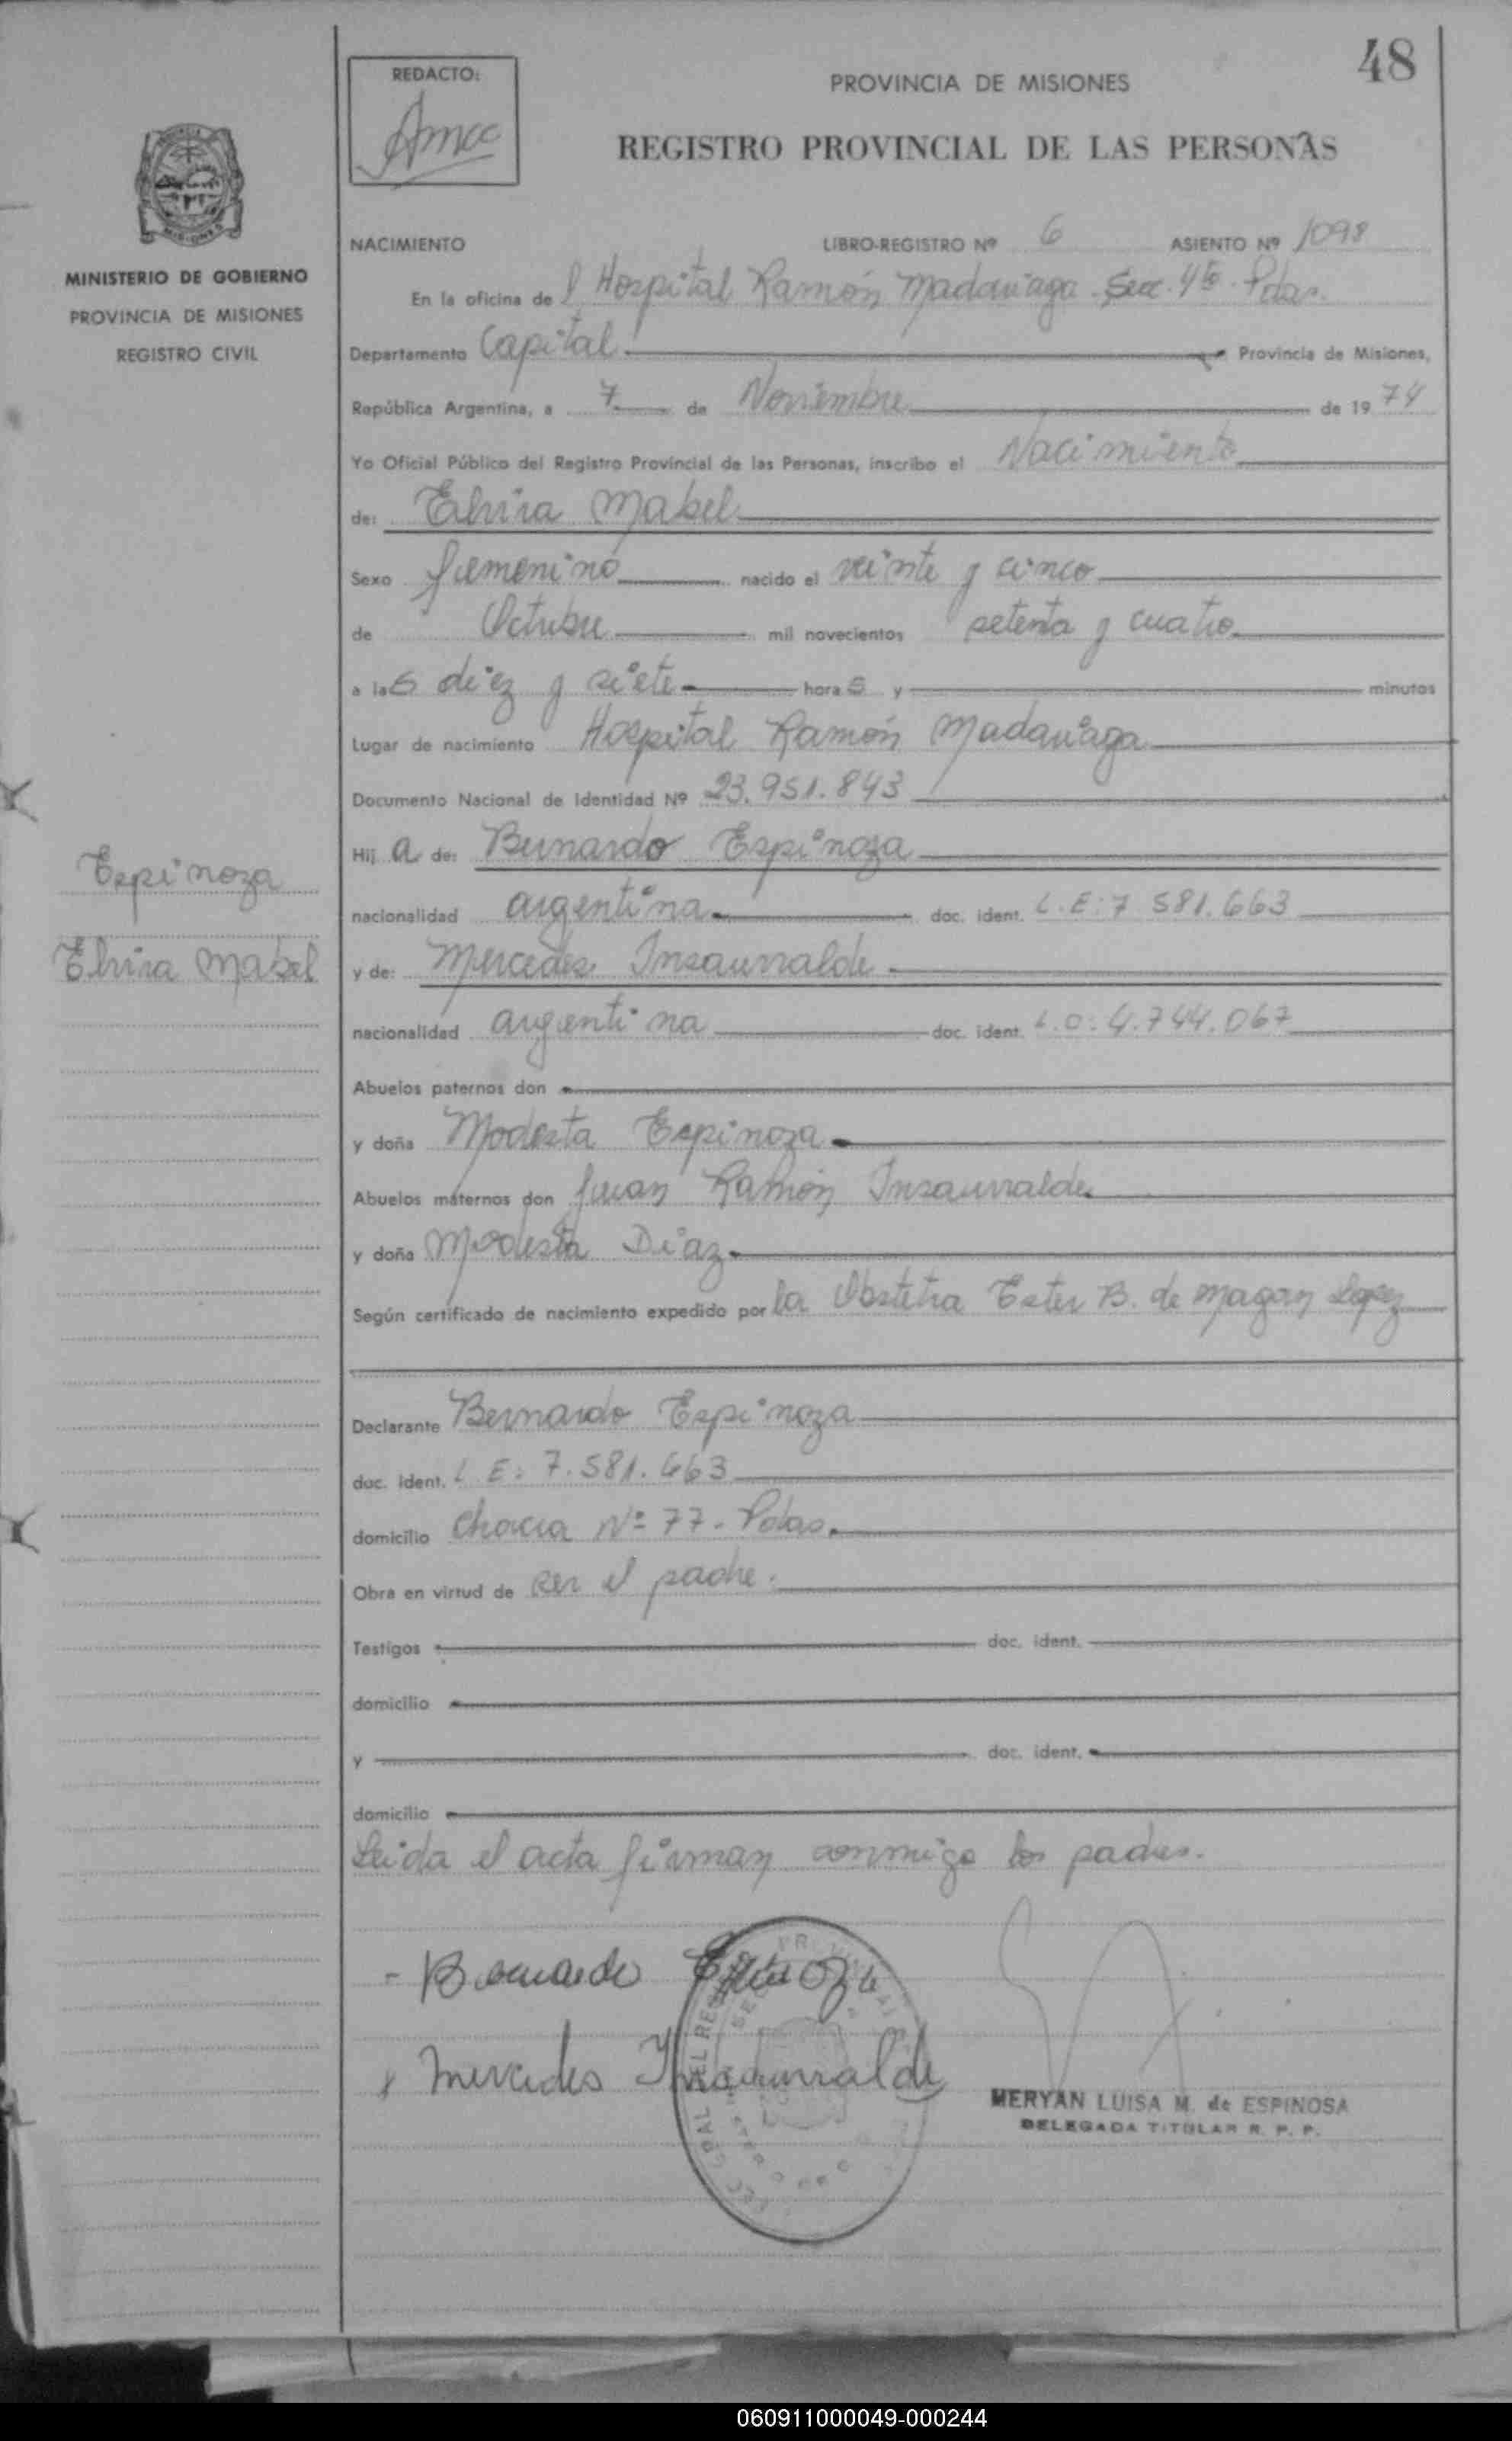 48
REDACTO:
PROVINCIA DE MISIONES
REGISTRO PROVINCIAL DE LAS PERSONAS
MINISTERIO DE GOBIERNO
PROVINCIA DE MISIONES
REGISTRO CIVIL
NACIMIENTO LIBRO-REGISTRO Nº 6 ASIENTO Nº 1098
En la oficina de l Hospital Ramón Madariaga - Secc. 4ta - Pdas.
Departamento Capital Provincia de Misiones,
República Argentina, a 7 de Noviembre de 1974
Yo Oficial Público del Registro Provincial de las Personas, inscribo el Nacimiento
de: Elvira Mabel
Sexo femenino nacido el veinte y cinco
de Octubre mil novecientos setenta y cuatro
a las diez y siete horas y minutos
Lugar de nacimiento Hospital Ramón Madariaga
Documento Nacional de Identidad Nº 23.951.843
Hija de: Bernardo Espinoza
nacionalidad argentina doc. ident. L.E: 7 581.663
y de: Mercedes Insaurralde
nacionalidad argentina doc. ident. L.C: 4.744.067
Espinoza
Elvira Mabel
Abuelos paternos don
y doña Modesta Espinoza
Abuelos maternos don Juan Ramón Insaurralde
y doña Modesta Diaz
Según certificado de nacimiento expedido por la Obstetra Ester B. de Magan Lopez
Declarante Bernardo Espinoza
doc. ident. L.E: 7.581.663
domicilio Chacra Nº 77 - Pdas.
Obra en virtud de ser el padre.
Testigos doc. ident.
domicilio
y doc. ident.
domicilio
Leida el acta firman conmigo los padres.
Bernardo Espinoza
Mercedes Insaurralde
MERYAN LUISA M. de ESPINOSA
DELEGADA TITULAR R. P. P.
060911000049-000244